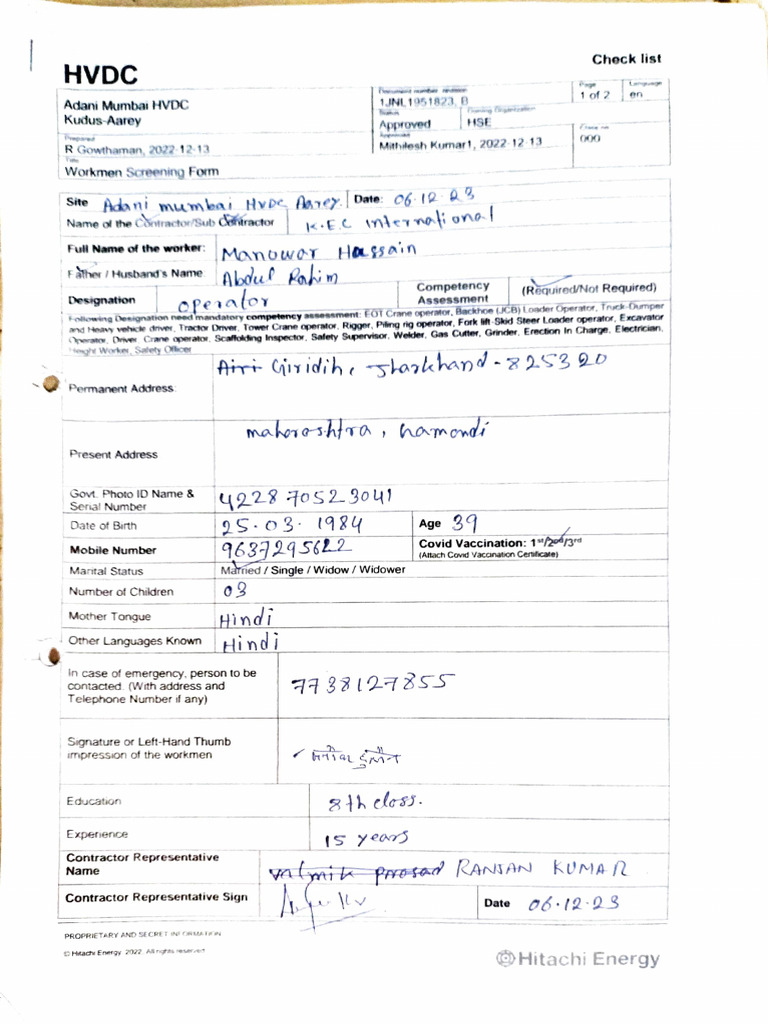 Check list
HVDC
Adani Mumbai HVDC
Kudus-Aarey
Document number revision
1JNL1951823, B
Page
1 of 2
Language
en
Status
Approved
Owning Organization
HSE
Prepared
R Gowthaman, 2022-12-13
Approved
Mithilesh Kumar1, 2022-12-13
000
Title
Workmen Screening Form
Site Adani mumbai HVDC Aarey Date: 06.12.23
Name of the Contractor/Sub Contractor K.E.C International
Full Name of the worker: Manowar Hassain
Father / Husband's Name Abdul Rahim
Designation operator Competency Assessment (Required/Not Required)
Following Designation need mandatory competency assessment: EOT Crane operator, Backhoe (JCB) Loader Operator, Truck-Dumper
and Heavy vehicle driver, Tractor Driver, Tower Crane operator, Rigger, Piling rig operator, Fork lift-Skid Steer Loader operator, Excavator
Operator, Driver, Crane operator, Scaffolding Inspector, Safety Supervisor, Welder, Gas Cutter, Grinder, Erection In Charge, Electrician,
Height Worker, Safety Officer
Permanent Address: Giridih, Jharkhand - 825320
Present Address maharashtra, hamondi
Govt. Photo ID Name &
Serial Number 4228 7052 3041
Date of Birth 25.03.1984 Age 39
Mobile Number 9637295622 Covid Vaccination: 1st/2nd/3rd
(Attach Covid Vaccination Certificate)
Marital Status Married / Single / Widow / Widower
Number of Children 03
Mother Tongue Hindi
Other Languages Known Hindi
In case of emergency, person to be
contacted. (With address and
Telephone Number if any) 7738127855
Signature or Left-Hand Thumb
impression of the workmen
Education 8th class.
Experience 15 years
Contractor Representative
Name valmik prasad RANJAN KUMAR
Contractor Representative Sign Date 06.12.23
PROPRIETARY AND SECRET INFORMATION
© Hitachi Energy. 2022. All rights reserved
Hitachi Energy